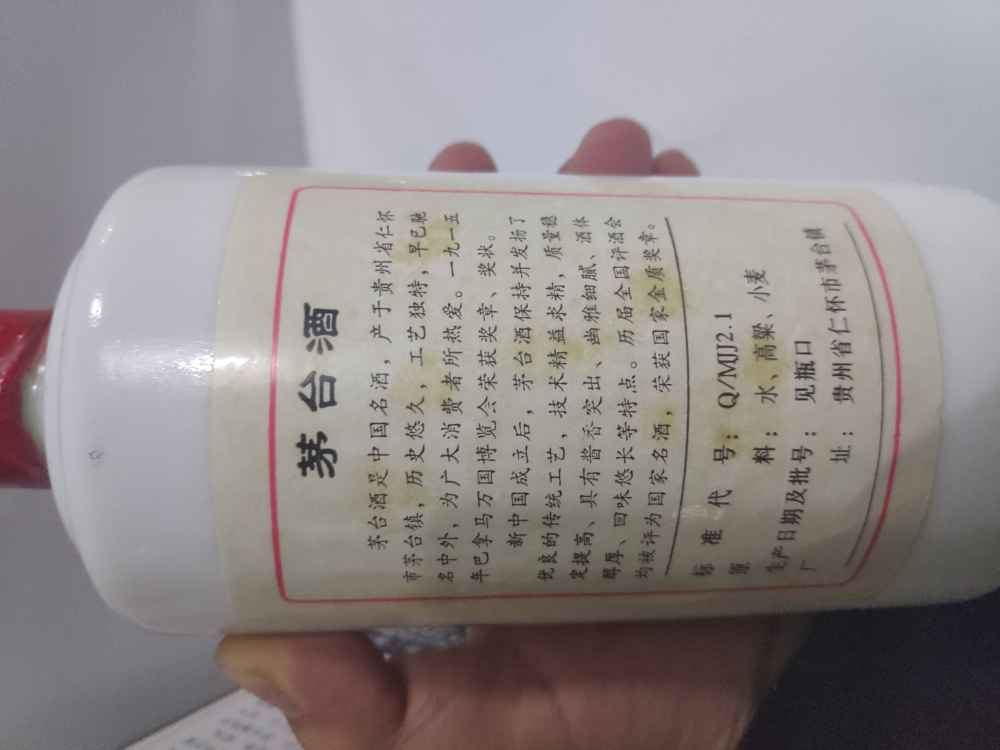 茅台酒
茅台酒是中国名酒，产于贵州省仁怀
市茅台镇，历史悠久，工艺独特，早已驰
名中外，为广大消费者所热爱。一九一五
年巴拿马万国博览会荣获奖章、奖状。
新中国成立后，茅台酒保持并发扬了
优良的传统工艺，技术精益求精，质量稳
定提高、具有酱香突出、幽雅细腻、酒体
醇厚、回味悠长等特点。历届全国评酒会
均被评为国家名酒，荣获国家金质奖章。
标准代号：Q/MJJ2.1
原料：水、高粱、小麦
生产日期及批号：见瓶口
厂址：贵州省仁怀市茅台镇